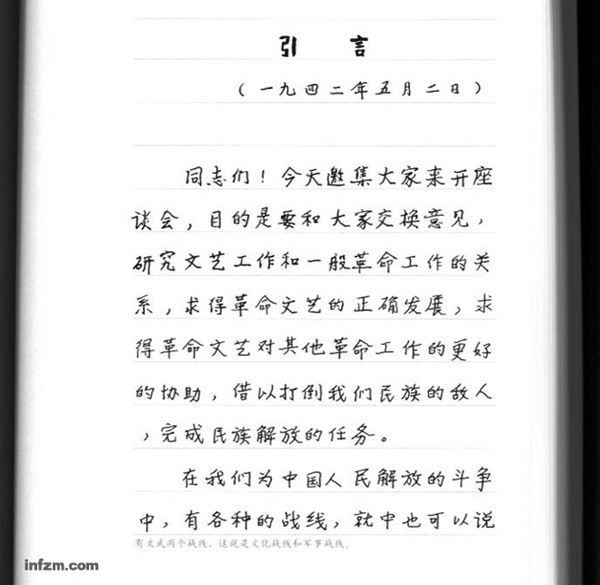 引 言
(一九四二年五月二日)
同志们!今天邀集大家来开座
谈会,目的是要和大家交换意见,
研究文艺工作和一般革命工作的关
系,求得革命文艺的正确发展,求
得革命文艺对其他革命工作的更好
的协助,借以打倒我们民族的敌人
,完成民族解放的任务。
在我们为中国人民解放的斗争
中,有各种的战线,就中也可以说
有文武两个战线,这就是文化战线和军事战线。
infzm.com